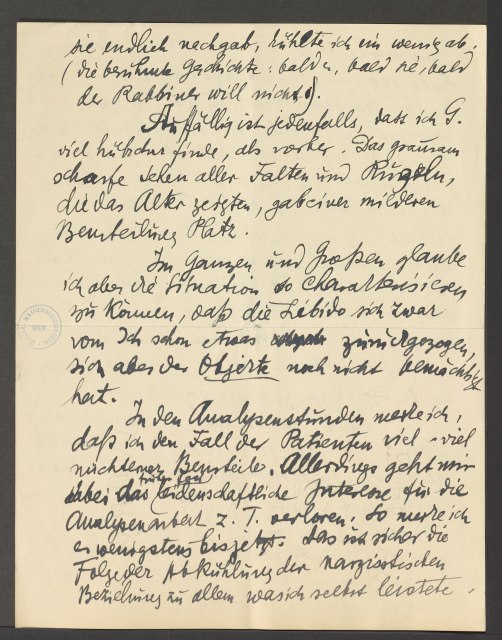 sie endlich nachgab, kühlte ich ein wenig ab.
(die berühmte Geschichte: bald er, bald sie, bald
der Rabbiner will nicht).
Auffällig ist jedenfalls, dass ich G.
viel hübscher finde, als vorher. Das grausam
scharfe Sehen aller Falten und Runzeln,
die das Alter zeigten, gab einer milderen
Beurteilung Platz.
Im Ganzen und Großen glaube
ich aber die Situation so charakterisieren
zu können, daß die Libido sich zwar
vom Ich schon etwas zurückgezogen,
sich aber der Objekte noch nicht bemächtigt
hat.
In den Analysenstunden merke ich,
daß ich den Fall der Patienten viel - viel
nüchterner Beurteile. Allerdings geht mir
dabei das leidenschaftliche Interesse für die
Analysenarbeit z. T. verloren. So merke ich
es wenigstens bis jetzt. Das ist sicher die
Folge der Abkühlung der narzisstischen
Beziehung zu allem was ich selbst leistete.